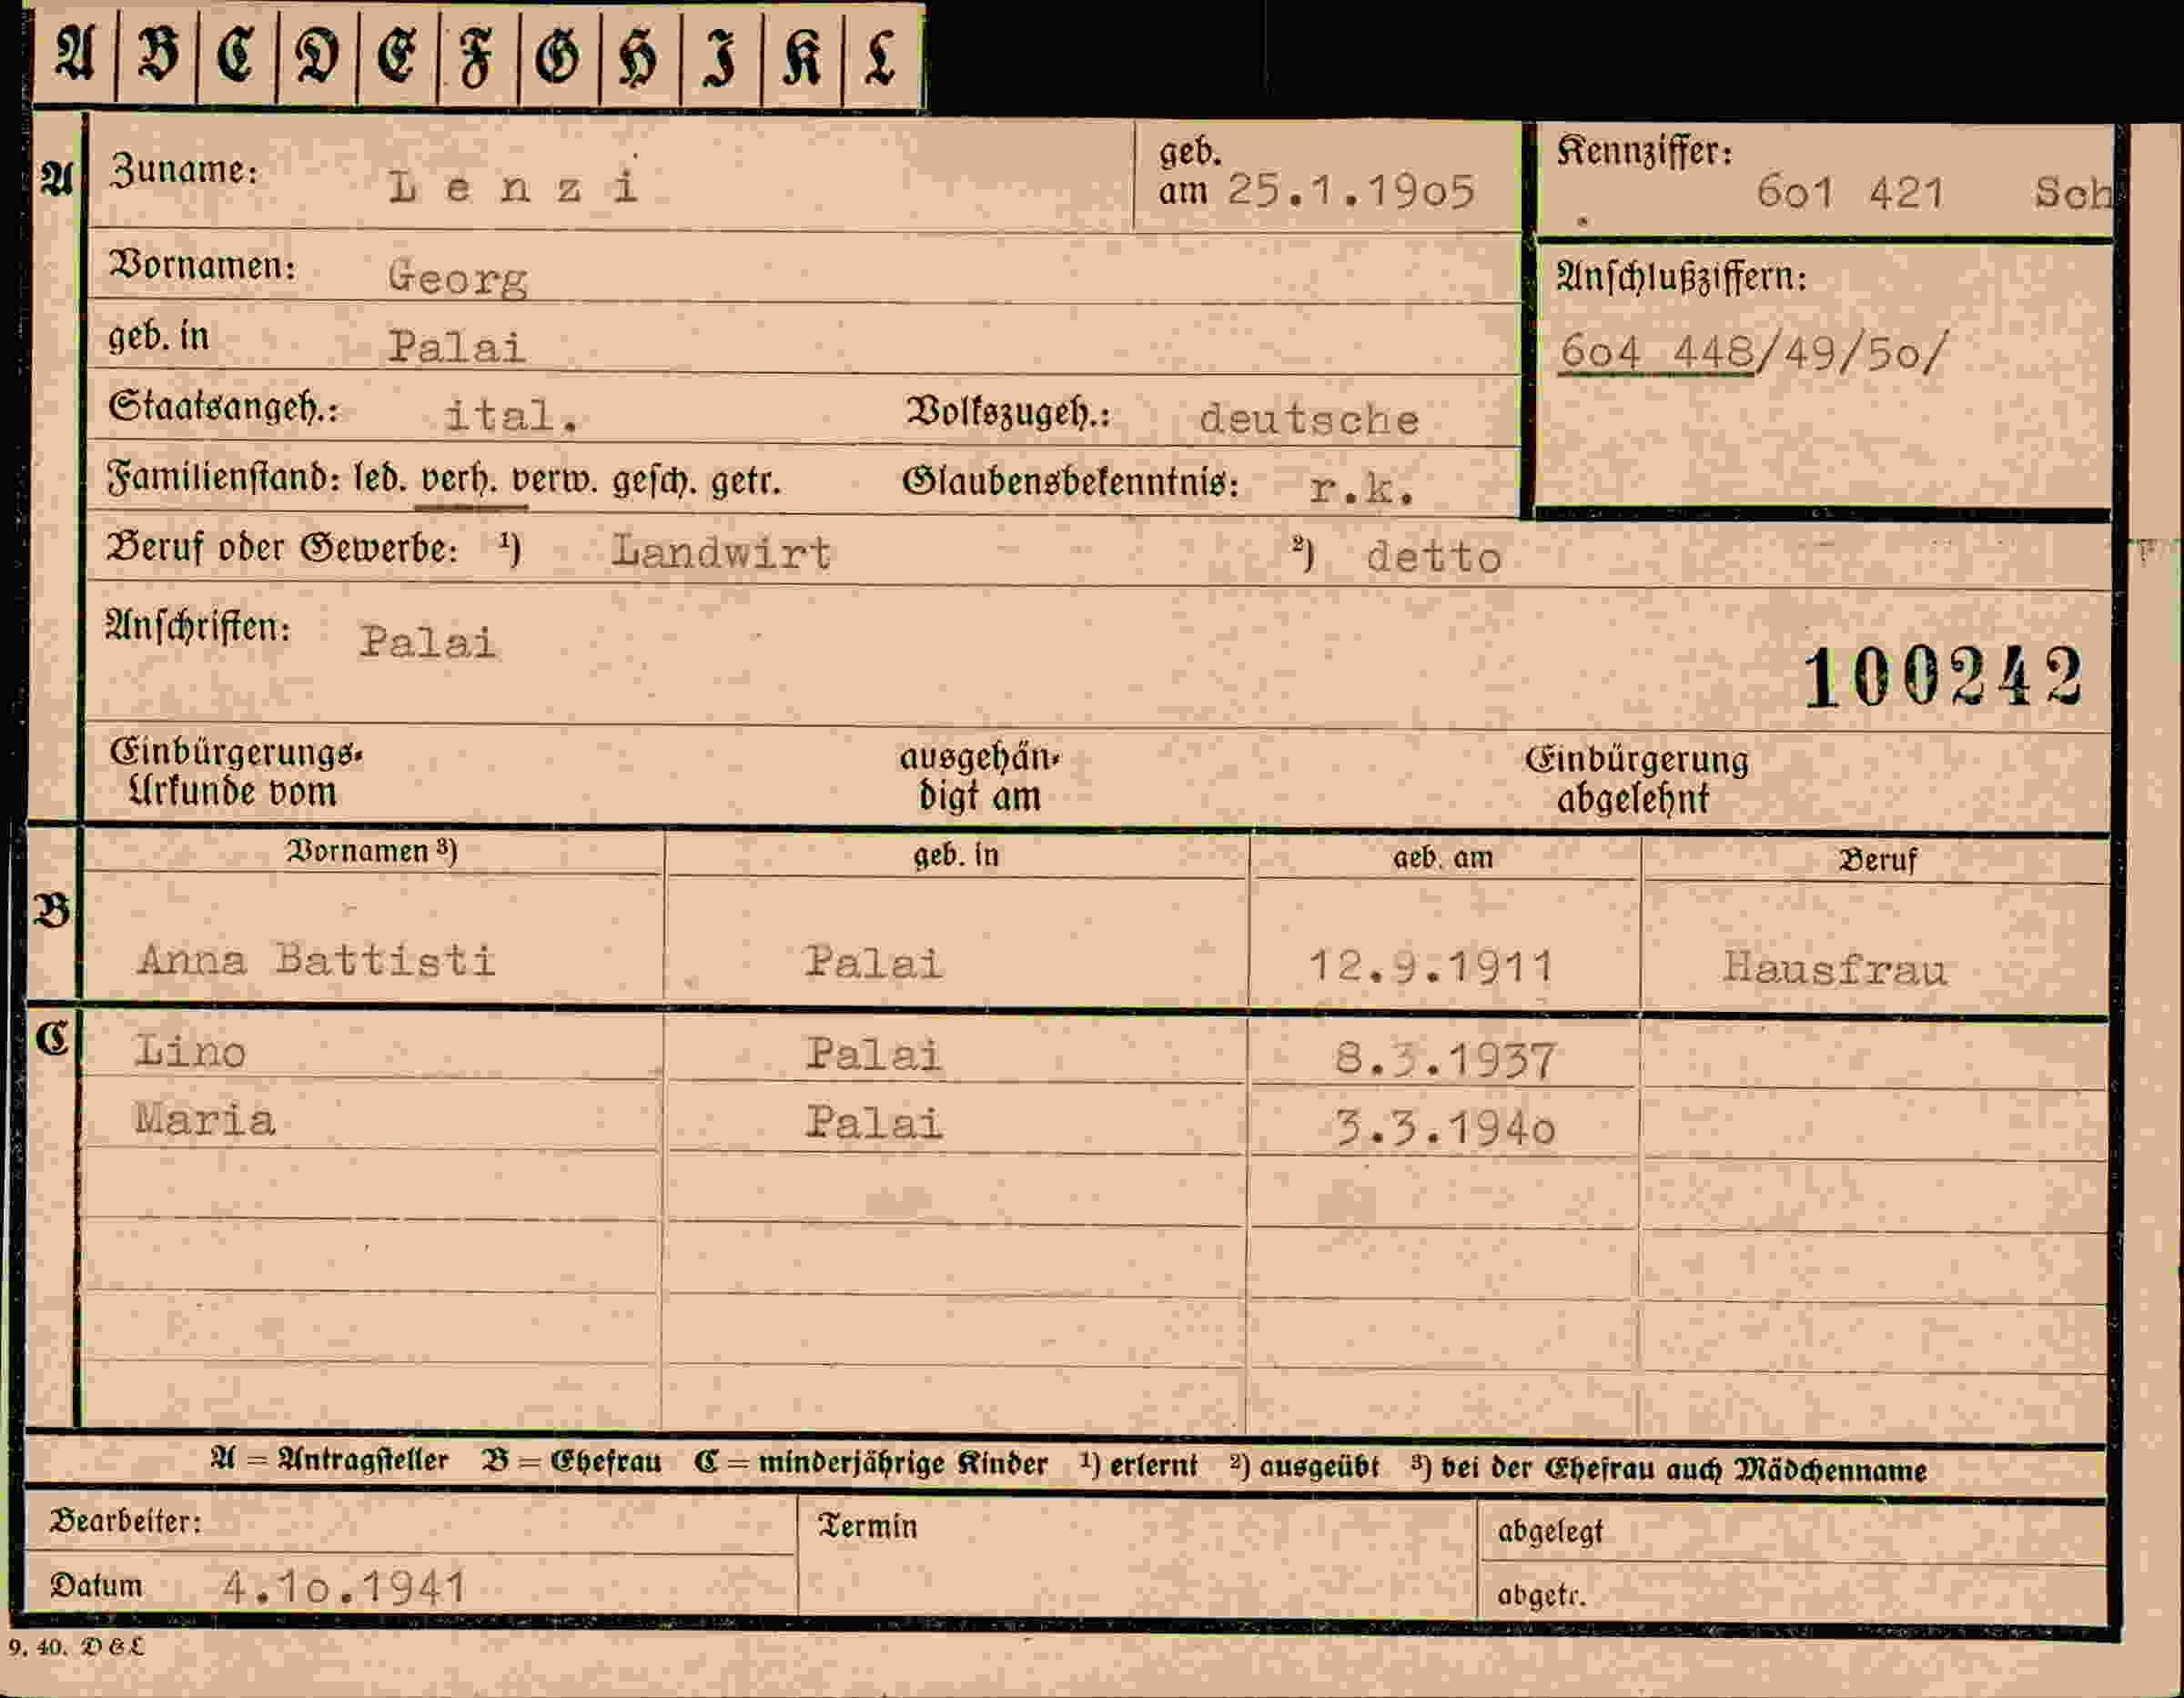 A B C D E F G H I K L
A Zuname: Lenzi geb. am 25.1.19o5 Kennziffer: 6o1 421 Sch
Vornamen: Georg Anschlußziffern:
geb. in Palai 6o4 448/49/5o/
Staatsangeh.: ital. Volkszugeh.: deutsche
Familienstand: led. verh. verw. gesch. getr. Glaubensbekenntnis: r.k.
Beruf oder Gewerbe: ¹) Landwirt ²) detto
Anschriften: Palai
100242
Einbürgerungs- ausgehän- Einbürgerung
Urkunde vom digt am abgelehnt
Vornamen ³) geb. in geb. am Beruf
B Anna Battisti Palai 12.9.1911 Hausfrau
C Lino Palai 8.3.1937
Maria Palai 3.3.194o
A = Antragsteller B = Ehefrau C = minderjährige Kinder ¹) erlernt ²) ausgeübt ³) bei der Ehefrau auch Mädchenname
Bearbeiter: Termin abgelegt
Datum 4.1o.1941 abgetr.
9. 40. D & L